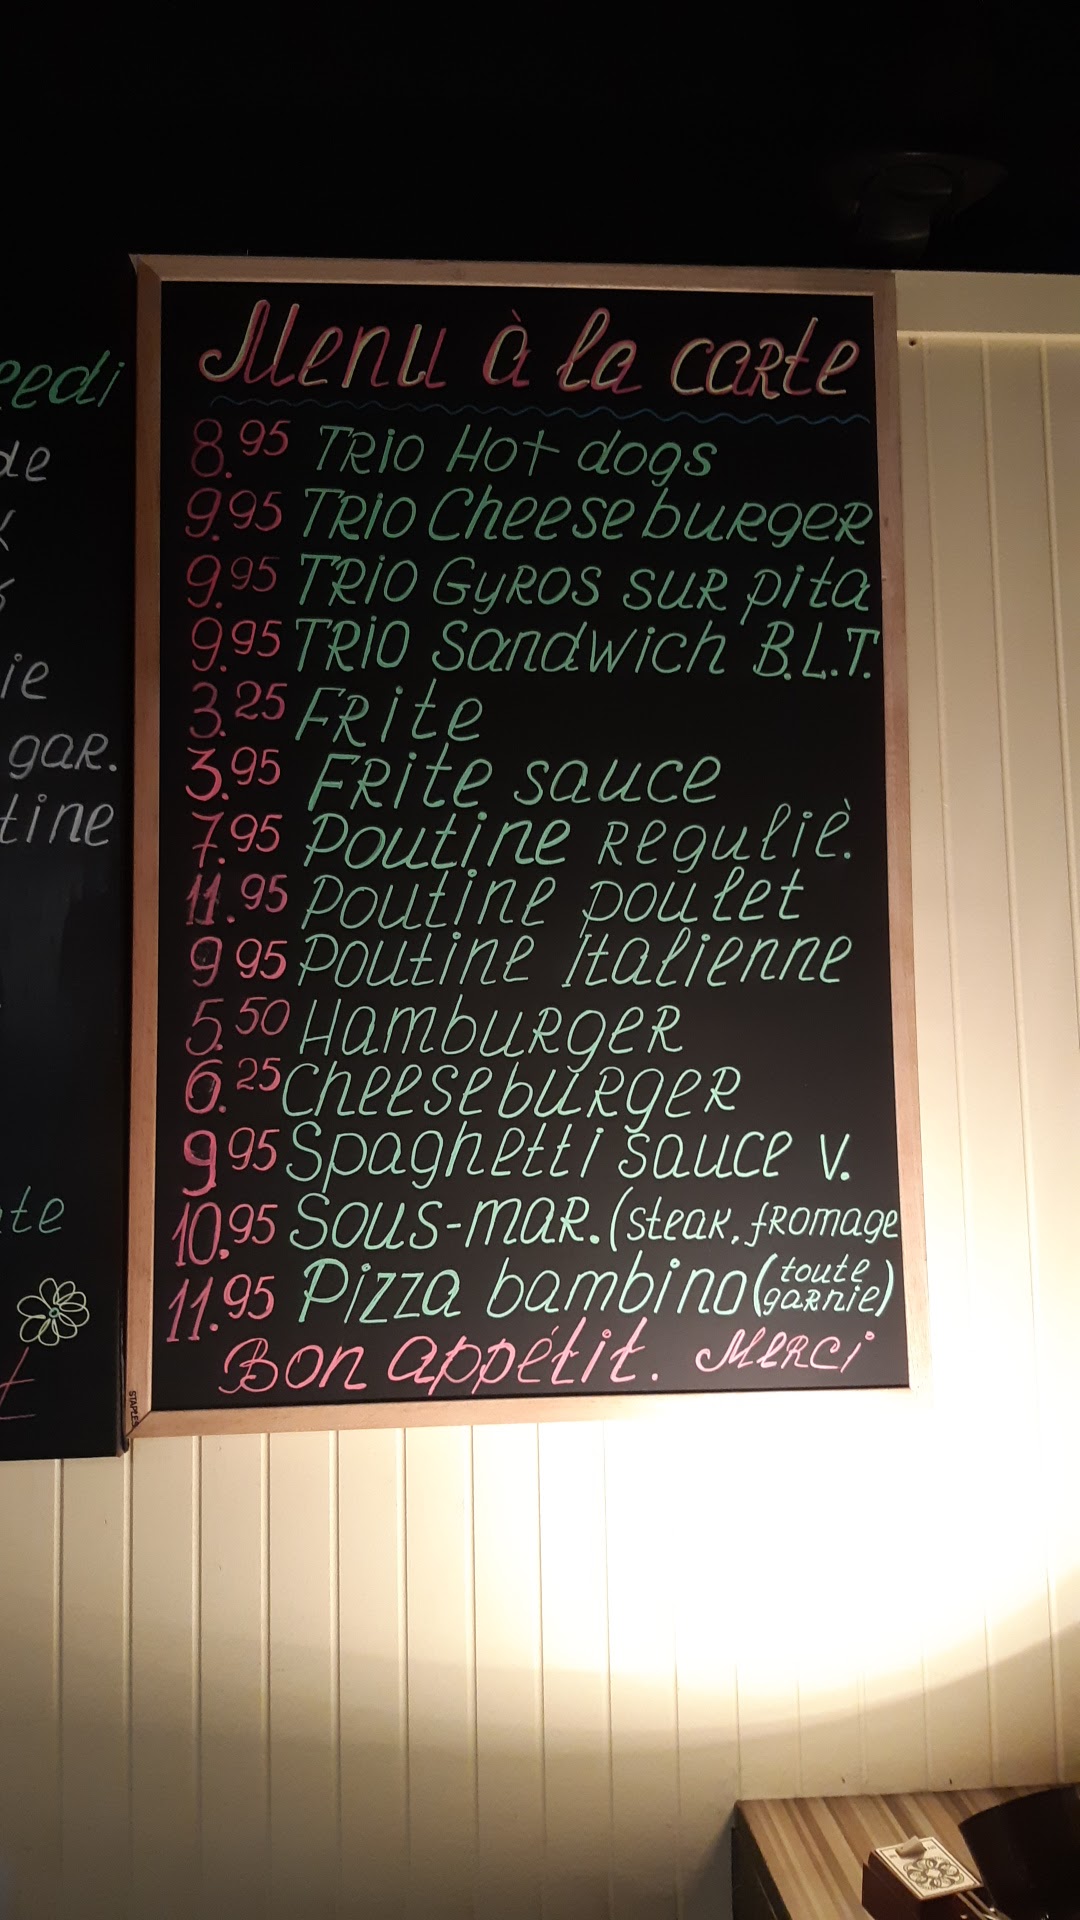 Menu à la carte
8.95 Trio Hot dogs
9.95 Trio Cheeseburger
9.95 Trio Gyros sur pita
9.95 Trio Sandwich B.L.T.
3.25 Frite
3.95 Frite sauce
7.95 Poutine Reguliè.
11.95 Poutine poulet
9 95 Poutine Italienne
5.50 Hamburger
6.25 Cheeseburger
9 95 Spaghetti sauce v.
10.95 Sous-mar. (steak, fromage
11.95 Pizza bambino (toute garnie)
Bon appétit. Merci
STAPLES
edi
de
ie
gar.
tine
te